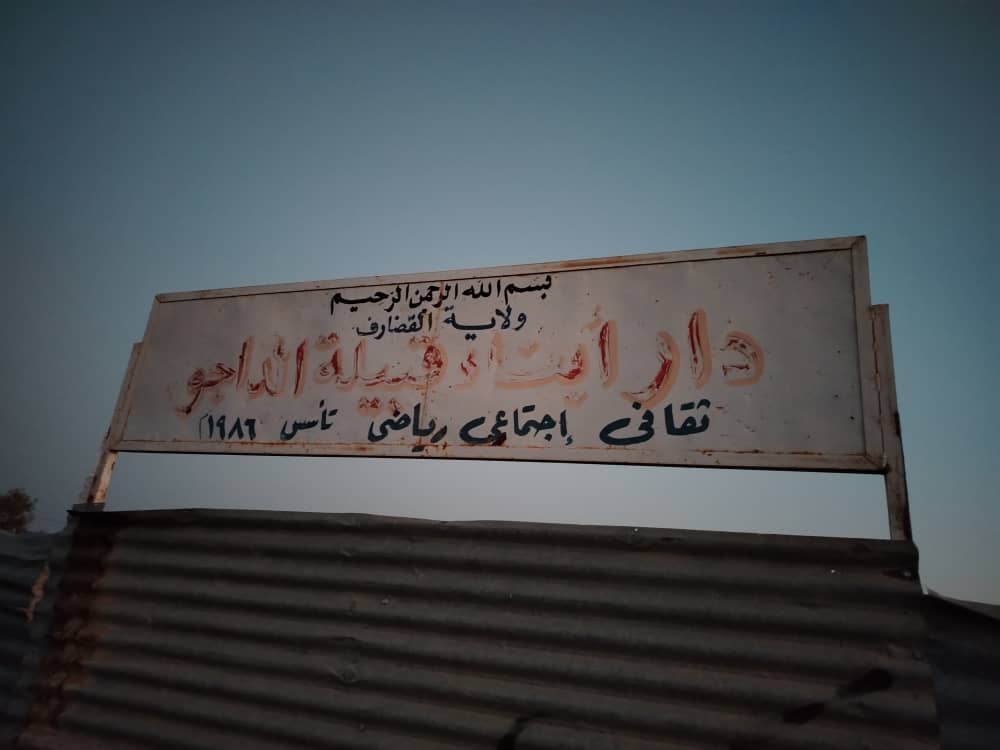 بسم الله الرحمن الرحيم
ولاية القضارف
دار أبناء قبيلة الداجو
ثقافى إجتماعى رياضى تأسس ١٩٨٦م